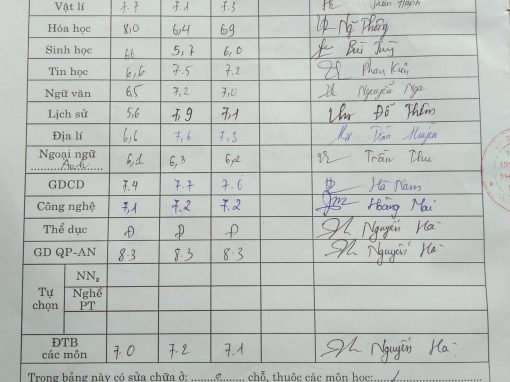 Vật lí 7.7 7.1 7.3
Hóa học 8,0 6,4 6,9
Sinh học 5,7 6,0
Tin học 6,6 7.5 7.2 Phan Kiên
Ngữ văn 6,5 7,2 7,0 Nguyễn Nga
Lịch sử 5,6 7,9 7,1 Đỗ Thêm
Địa lí 6,6 7,6 7,3 Trần Huyền
Ngoại ngữ 6,1 6,3 6,2 Trần Thu
Anh
GDCD 7.4 7.7 7.6 Hà Nam
Công nghệ 7,1 7.2 7.2 Hoàng Mai
Thể dục Đ Đ Đ Nguyễn Hà
GD QP-AN 8.3 8.3 8.3 Nguyễn Hà
Tự chọn NN₂
Nghề PT
ĐTB các môn 7.0 7.2 7.1 Nguyễn Hà
Trong bảng này có sửa chữa ở: 0 chỗ, thuộc các môn học: /